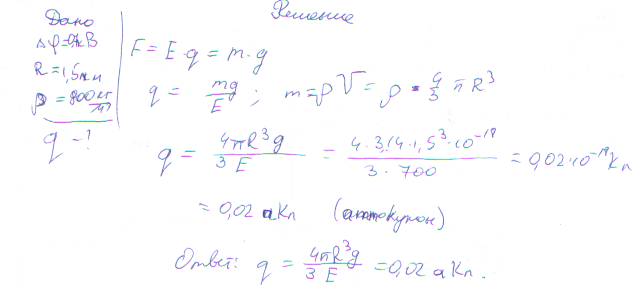 Дано
R = 1,5мкм
ρ = 800 кг/м³
q - ?
Решение
F = E · q = m · g
q = mg/E ; m = ρV = ρ · 4/3 π R³
q = 4πR³g / 3E = 4 · 3,14 · 1,5³ · 10⁻¹⁸ / 3 · 700 = 0,02 · 10⁻¹⁸ Кл
= 0,02 аКл (аттокулон)
Ответ: q = 4πR³g / 3E = 0,02 аКл.